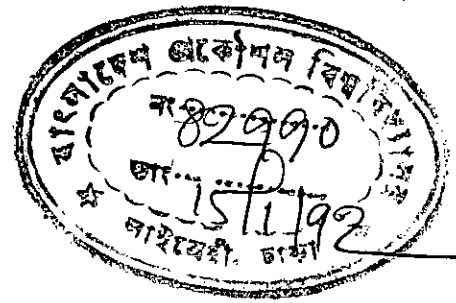 বাংলাদেশ প্রকৌশল বিশ্ববিদ্যালয়
নং
তাং 15/1/92
☆ লাইব্রেরী, ঢাকা